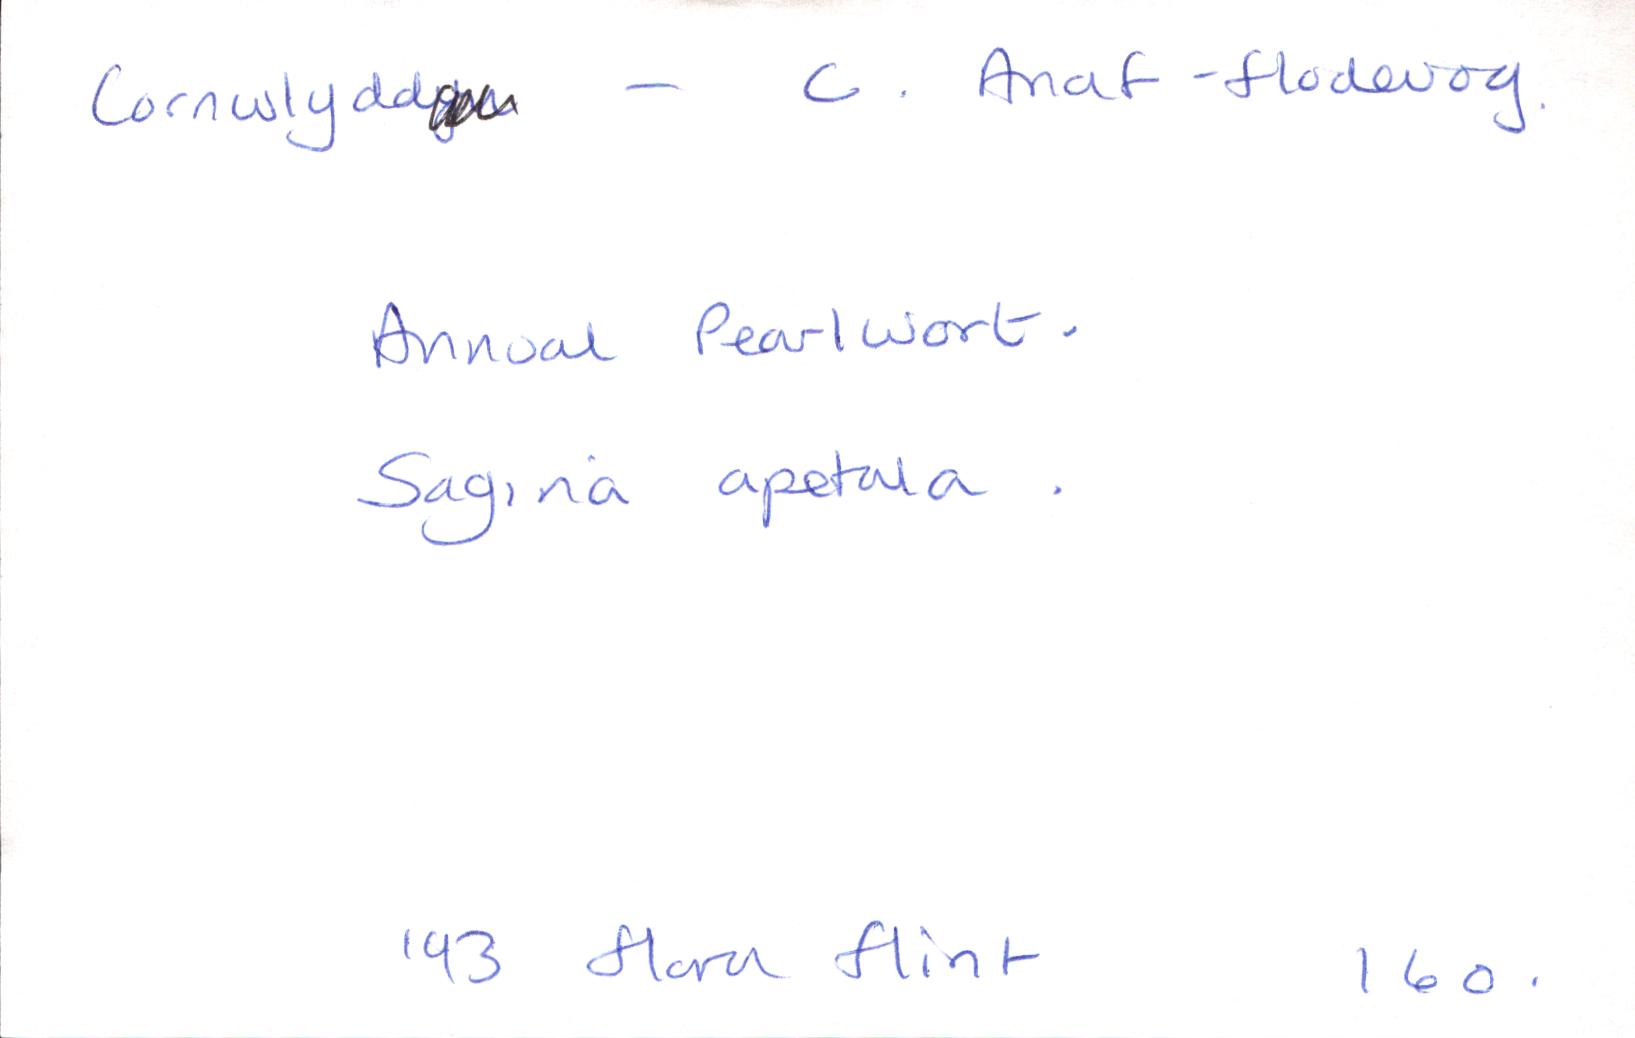 Cornwlydd — C. Anaf-flodevog.
Annual Pearlwort.
Sagina apetala.
'93 flora flint 160.